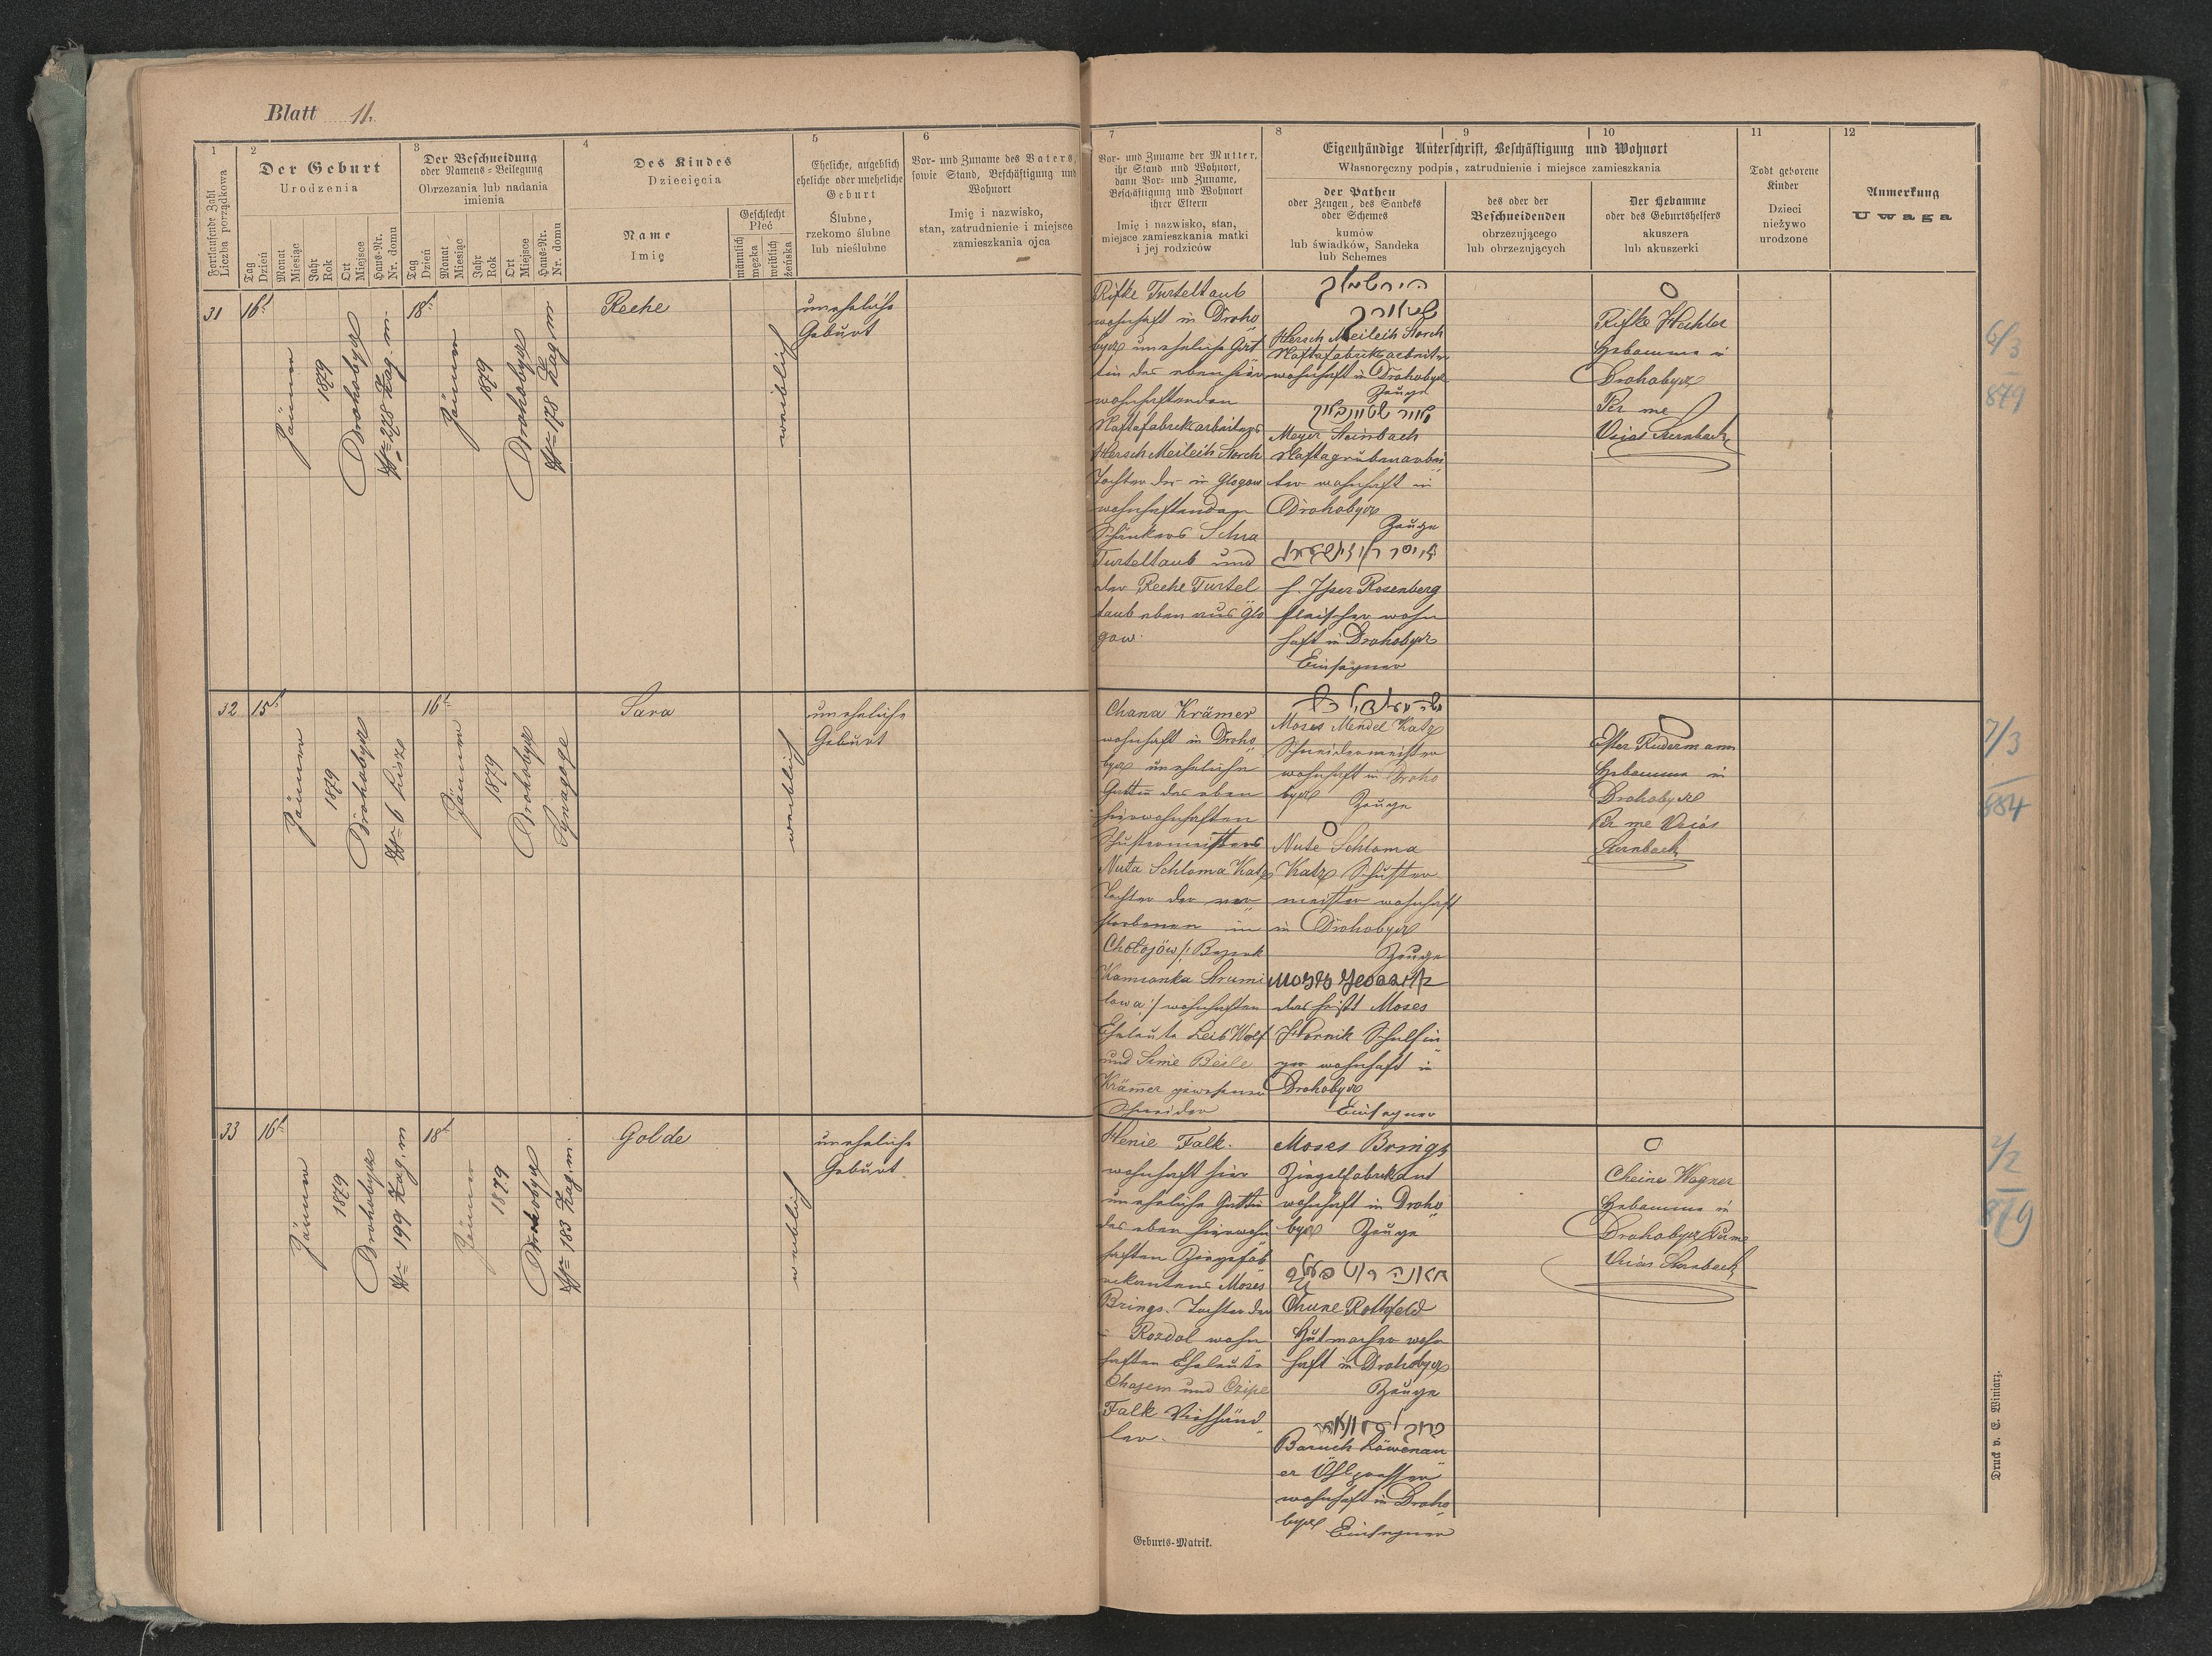 Blatt 11.
1
2
3
4
5
6
Fortlaufende Zahl
Liczba porządkowa
Der Geburt
Urodzenia
Tag
Dzień
Monat
Miesiąc
Jahr
Rok
Ort
Miejsce
Haus-Nr.
Nr. domu
Der Beschneidung
oder Namens-Beilegung
Obrzezania lub nadania
imienia
Tag
Dzień
Monat
Miesiąc
Jahr
Rok
Ort
Miejsce
Haus-Nr.
Nr. domu
Des Kindes
Dziecięcia
Name
Imię
Geschlecht
Płeć
männlich
męzka
weiblich
żeńska
Eheliche, angeblich
eheliche oder uneheliche
Geburt
Ślubne,
rzekomo ślubne
lub nieślubne
Vor- und Zuname des Vaters,
sowie Stand, Beschäftigung und
Wohnort
Imię i nazwisko,
stan, zatrudnienie i miejsce
zamieszkania ojca
7
8
9
10
11
12
Vor- und Zuname der Mutter,
ihr Stand und Wohnort,
dann Vor- und Zuname,
Beschäftigung und Wohnort
ihrer Eltern
Imię i nazwisko, stan,
miejsce zamieszkania matki
i jej rodziców
Eigenhändige Unterschrift, Beschäftigung und Wohnort
Własnoręczny podpis, zatrudnienie i miejsce zamieszkania
der Pathen
oder Zeugen, des Sandeks
oder Schemes
kumów
lub świadków, Sandeka
lub Schemes
des oder der
Beschneidenden
obrzezującego
lub obrzezujących
Der Hebamme
oder des Geburtshelfers
akuszera
lub akuszerki
Todt geborene
Kinder
Dzieci
nieżywo
urodzone
Anmerkung
Uwaga
31
16t
Jänner
1879
Drohobycz
Nr 278 Zag. m.
18t
Jänner
1879
Drohobycz
Nr 178 Zag m
Reche
weiblich
uneheliche
Geburt
Rifke Turteltaub
wohnhaft in Droho
bycz uneheliche Gat
tin des eben hier
wohnhaftenden
Naftafabriksarbeiters
Hersch Meileih Storch
Tochter der in Glogow
wohnhaftenden
Schänkers Schia
Turteltaub und
der Reche Turtel
taub eben aus Glo
gow.
Hersch Meileih Storch
Naftafabriksarbeiter
wohnhaft in Drohobycz
Zeuge
Meyer Steinbach
Naftagrubenarbei
ter wohnhaft in
Drohobycz
Zeuge
Rosenberg
Fleischer wohn
haft in Drohobycz
Einsegner
Rifke Hechler
Hebamme in
Drohobycz
Per me
Urias Sternbach
6/3
879
32
15t
Jänner
1879
Drohobycz
Nr 6 Lisze
16t
Jänner
1879
Drohobycz
Synagoge
Sara
weiblich
uneheliche
Geburt
Chana Krämer
wohnhaft in Droho
bycz uneheliche
Gattin des eben
hierwohnhaften
Schustermeisters
Nuta Schloma Katz
Tochter der ver
storbenen in
Chołojów /: Bezirk
Kamionka Strumi
lowa :/ wohnhaften
Eheleute Leib Wolf
und Sime Beile
Krämer gewesener
Schneider
Moses Mendel Katz
Schneidermeister
wohnhaft in Droho
bycz Zeuge
Nute Schloma
Katz Schuster
meister wohnhaft
in Drohobycz
Zeuge
das heißt Moses
Hornik Schulsin
ger wohnhaft in
Drohobycz
Einsegner
Ester Rudermann
Hebamme in
Drohobycz
Per me Urias
Sternbach
7/3
884
33
16t
Jänner
1879
Drohobycz
Nr 199 Zag. m
18t
Jänner
1879
Drohobycz
Nr 183 Zag. m.
Golde
weiblich
uneheliche
Geburt
Henie Falk.
wohnhaft hier
uneheliche Gattin
des eben hierwohn
haften Ziegelfab
rikantens Moses
Brings. Tochter der
in Rozdol wohn
haften Eheleute
Chajem und Czipe
Falk Viehhänd
ler.
Moses Brings
Ziegelfabrikant
wohnhaft in Droho
bycz Zeuge
Chune Rothfeld
Hutmacher wohn
haft in Drohobycz
Zeuge
Baruch Löwenau
er Öhlpresser
wohnhaft in Droho
bycz Einsegner
Cheine Wagner
Hebamme in
Drohobycz Per me
Urias Sternbach
2/2
879
Druck v. E. Winiarz.
Geburts-Matrik.